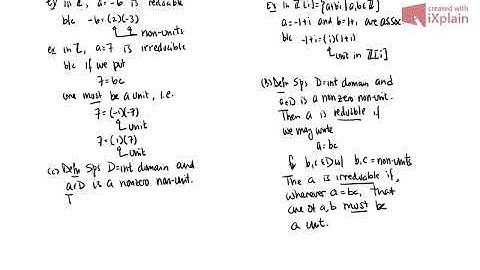 ex in Z, a=-6 is reducible
b/c -6=(2)(-3)
non-units
ex in Z, a=7 is irreducible
b/c if we put
7=bc
one must be a unit, i.e.
7=(-1)(-7)
unit
7=(1)(7)
unit
(c) Defn Sps D=int domain and
a∈D is a nonzero non-unit.
T
ex in Z[i]={a+bi | a,b∈Z}
a=-1+i and b=1+i are assoc
b/c -1+i=(i)(1+i)
unit in Z[i]
(b) Defn Sps D=int domain and
a∈D is a nonzero non-unit.
Then a is reducible if
we may write
a=bc
for b,c∈D w/ b,c=non-units
The a is irreducible if,
whenever a=bc, that
one of a,b must be
a unit.
created with
iXplain